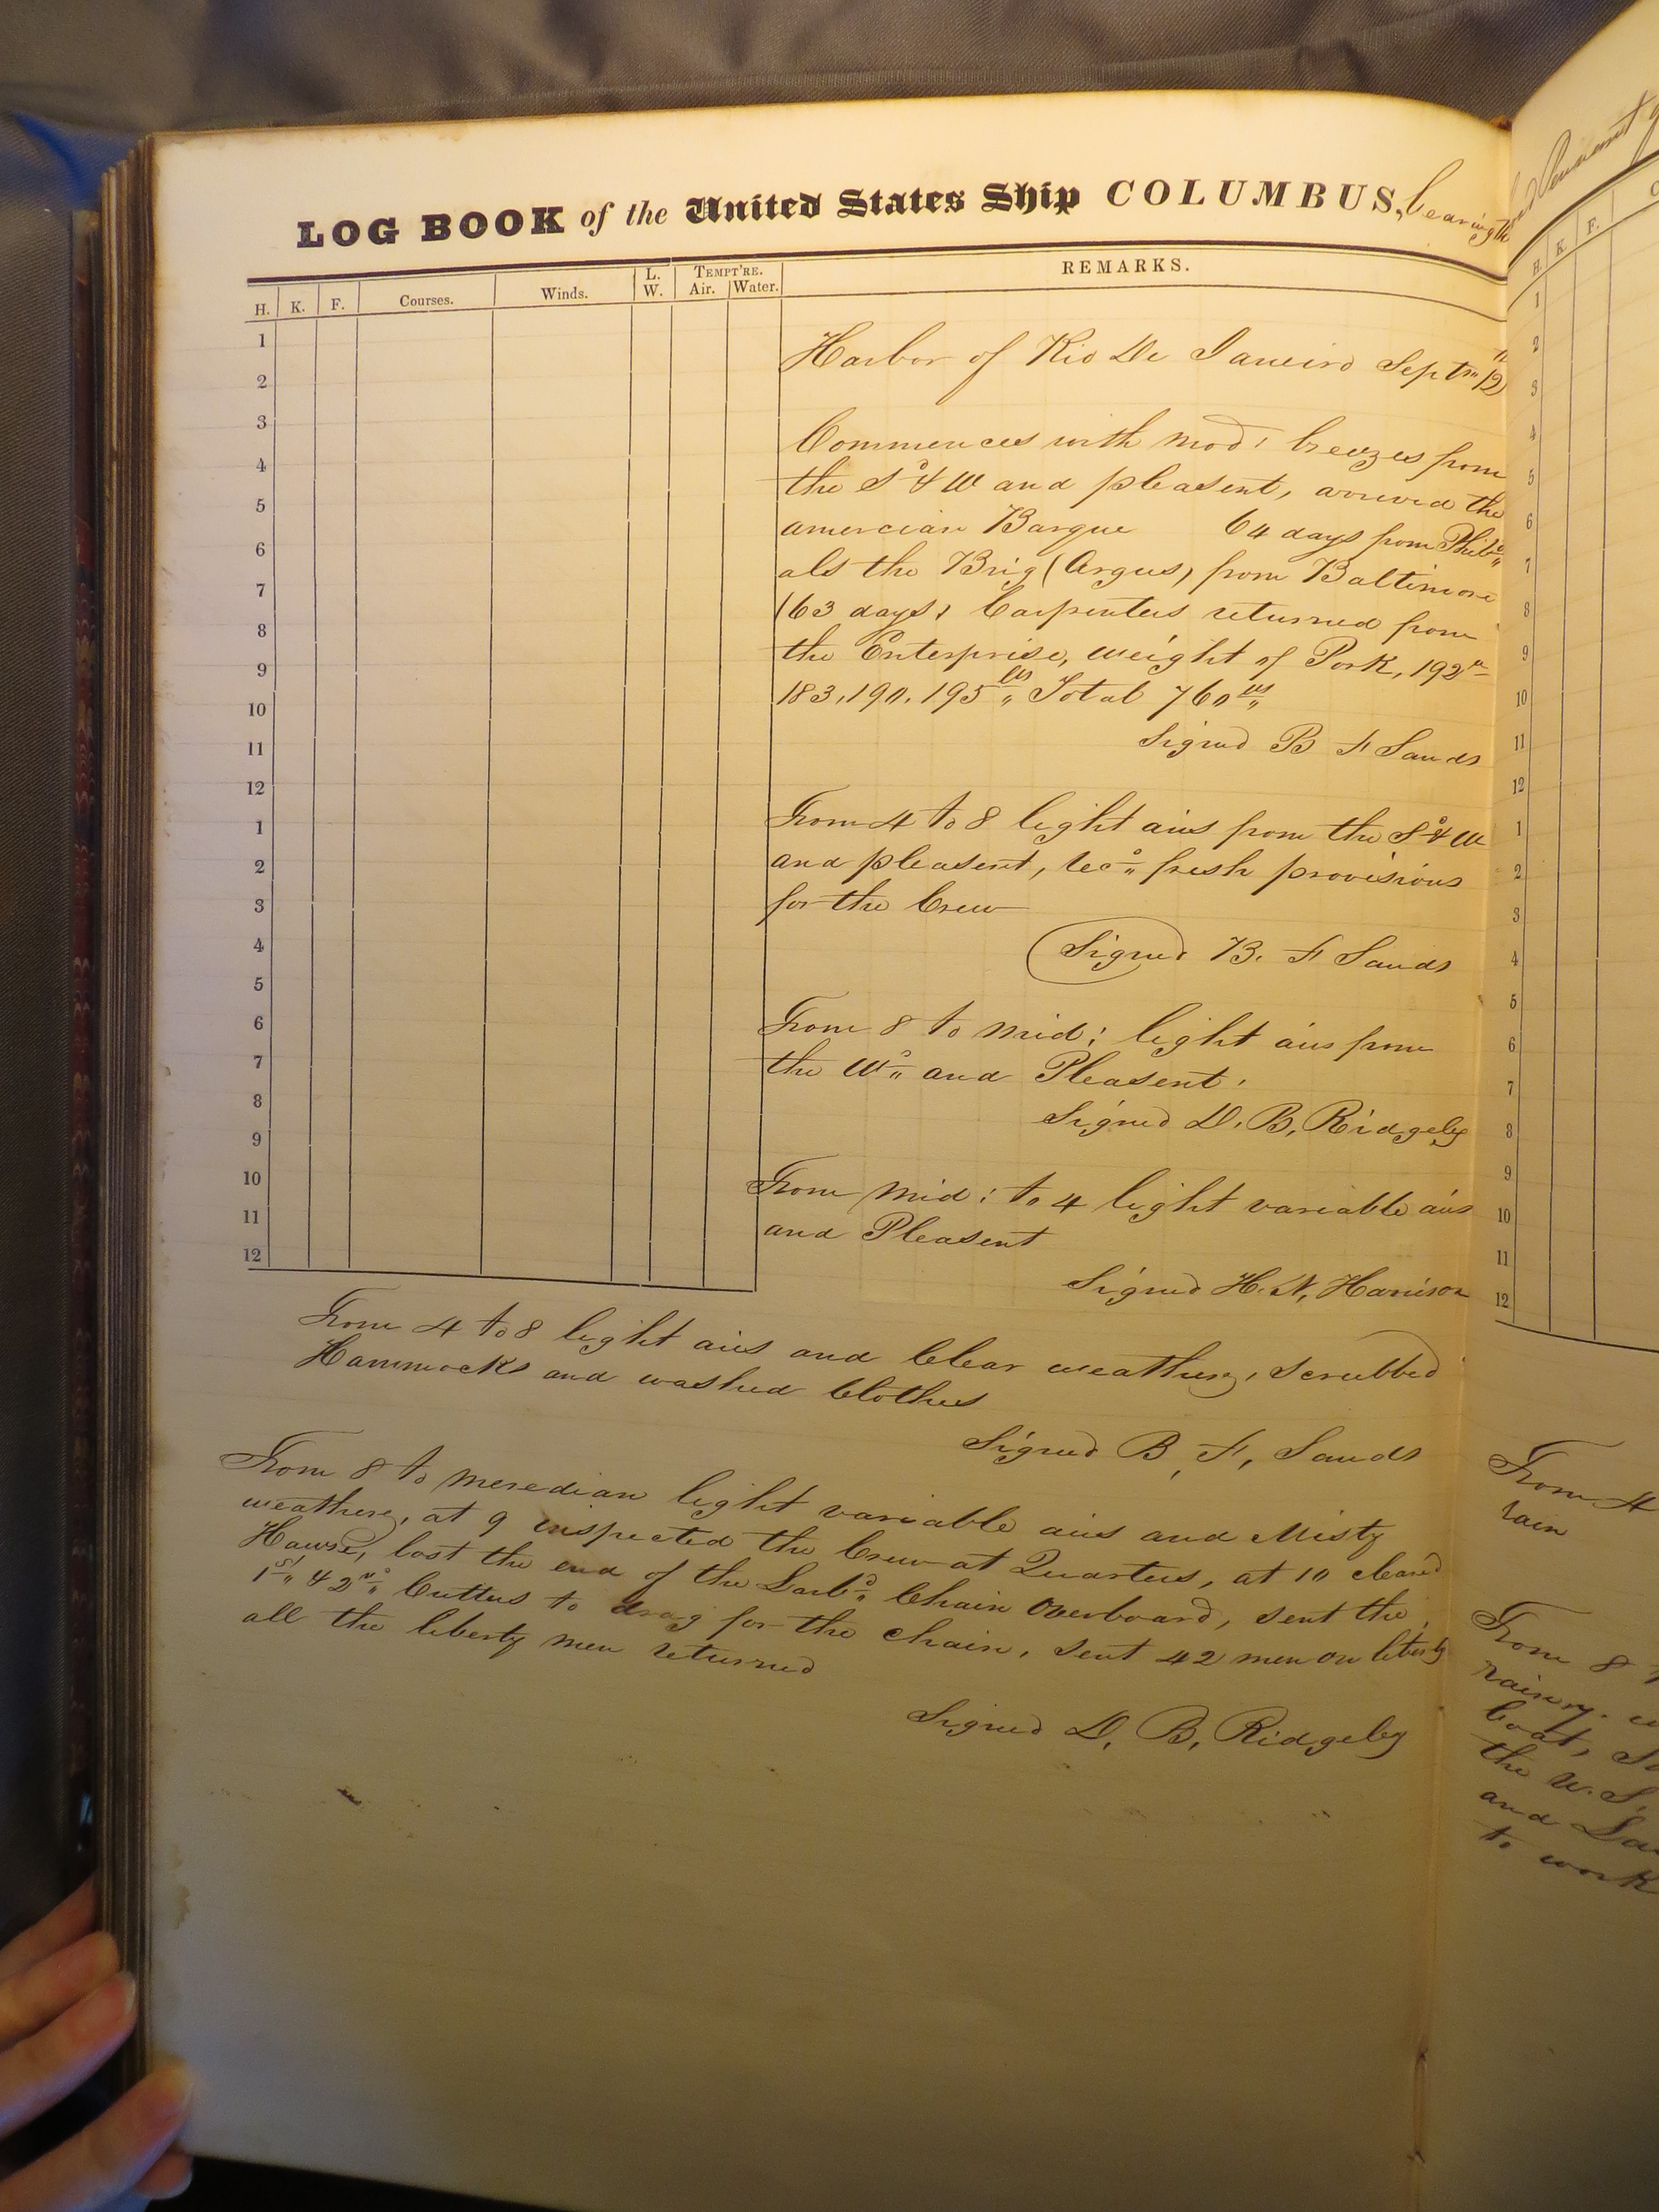 LOG BOOK of the United States Ship COLUMBUS, bearing th
H. K. F. Courses. Winds. L. W. TEMPT'RE. Air. Water. REMARKS.
1
2
3
4
5
6
7
8
9
10
11
12
1
2
3
4
5
6
7
8
9
10
11
12
Harbor of Rio De Janeiro Septm 12
Commences with mod: breezes from
the Sd & W and pleasent, arrived the
amercian Barque 64 days from Phila
also the Brig (Argus) from Baltimore
(63 days) Carpenters returned from
the Enterprise, weight of Pork, 192
183, 190, 195 lbs Total 760 lbs
Signed B F Sands
From 4 to 8 light airs from the Sd & W
and pleasent, recd fresh provisions
for the Crew
Signed B. F Sands
From 8 to mid: light airs from
the Wd and Pleasent.
Signed D. B. Ridgely
From mid: to 4 light variable airs
and Pleasent
Signed H. N. Harrison
From 4 to 8 light airs and Clear weather, Scrubbed
Hammocks and washed Clothes
Signed B. F. Sands
From 8 to meredian light variable airs and Misty
weather, at 9 inspected the Crew at Quarters, at 10 cleared
Hawse, lost the end of the Larbd Chain Overboard, sent the
1st & 2nd Cutters to drag for the chain, sent 42 men on liberty
all the liberty men returned
Signed D. B. Ridgely
Pennant
H. K. F. C
1
2
3
4
5
6
7
8
9
10
11
12
1
2
3
4
5
6
7
8
9
10
11
12
From 4
rain
From 8
rainy.
boat,
the U.S.
and
to work